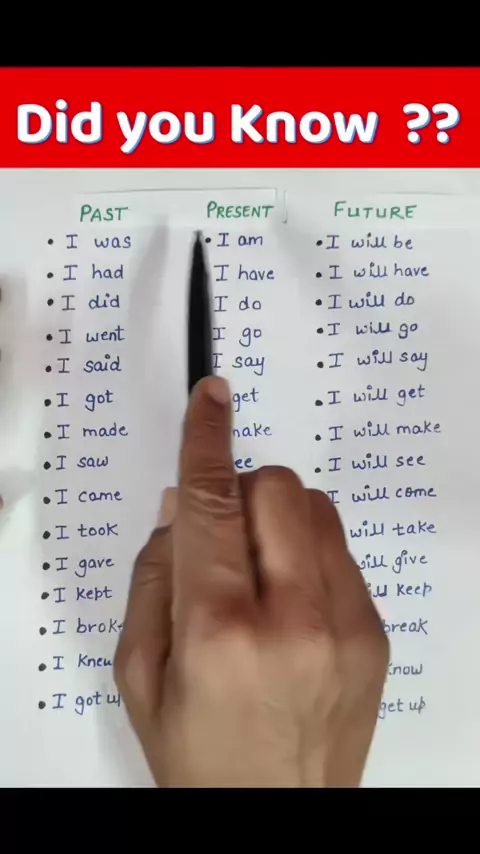 Did you Know ??
PAST PRESENT FUTURE
• I was • I am • I will be
• I had I have • I will have
• I did I do • I will do
• I went I go • I will go
• I said I say • I will say
• I got get • I will get
• I made make • I will make
• I saw • I will see
• I came I will come
• I took will take
• I gave give
• I kept keep
• I break
• I
• I got get up